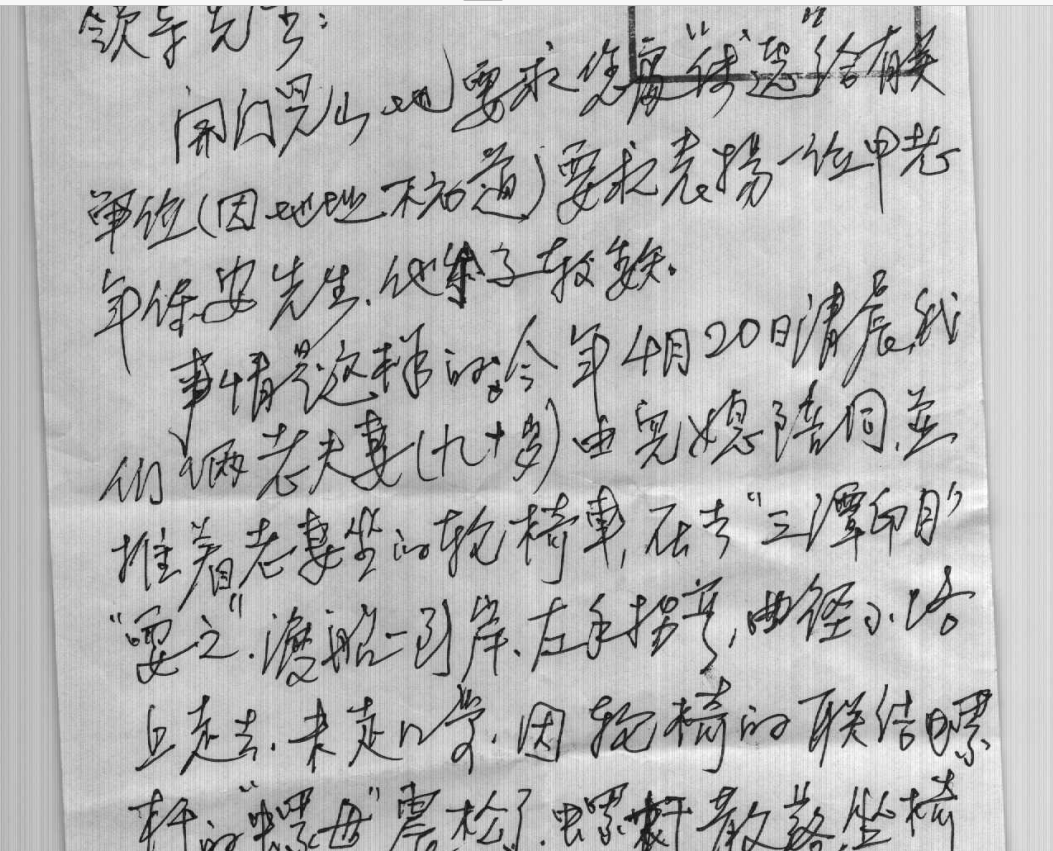 领导先生:
开门见山地要求您处"传递"给有关
单位(因地址不知道)要求表揚一位中老
年保安先生.他牛子较矮.
事情是这样的.今年4月20日清晨,我
们俩老夫妻(九十岁)由兒媳陪同,並
推着老妻坐的轮椅車,在去"三潭印月"
"耍之".渡船一到岸.左手拐弯,曲径小路
上走去.未走几步.因轮椅的联结螺
杆的"螺母"震松了.螺杆散落.坐椅